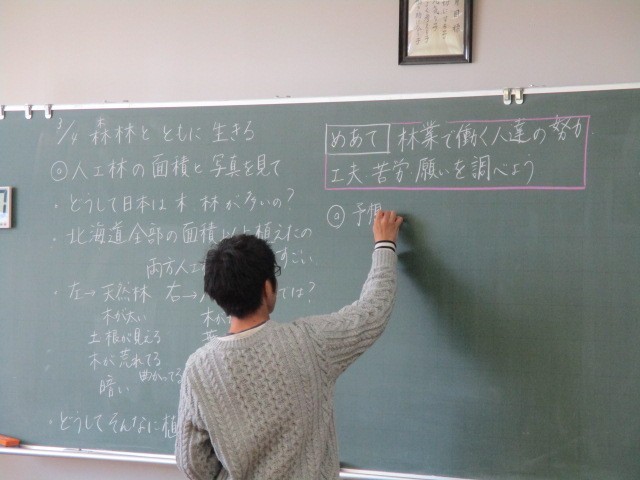 3/4 森林とともに生きる
◎人工林の面積と写真を見て
・どうして日本は木林が多いの?
・北海道全部の面積以上植えたの
両方人工 すごい
・左→天然林 右→ ては?
木が太い 木が
土根が見える
木が荒れてる
曲がってる
暗い
・どうしてそんなに植
めあて 林業で働く人達の努力
工夫、苦労、願いを調べよう
◎予想